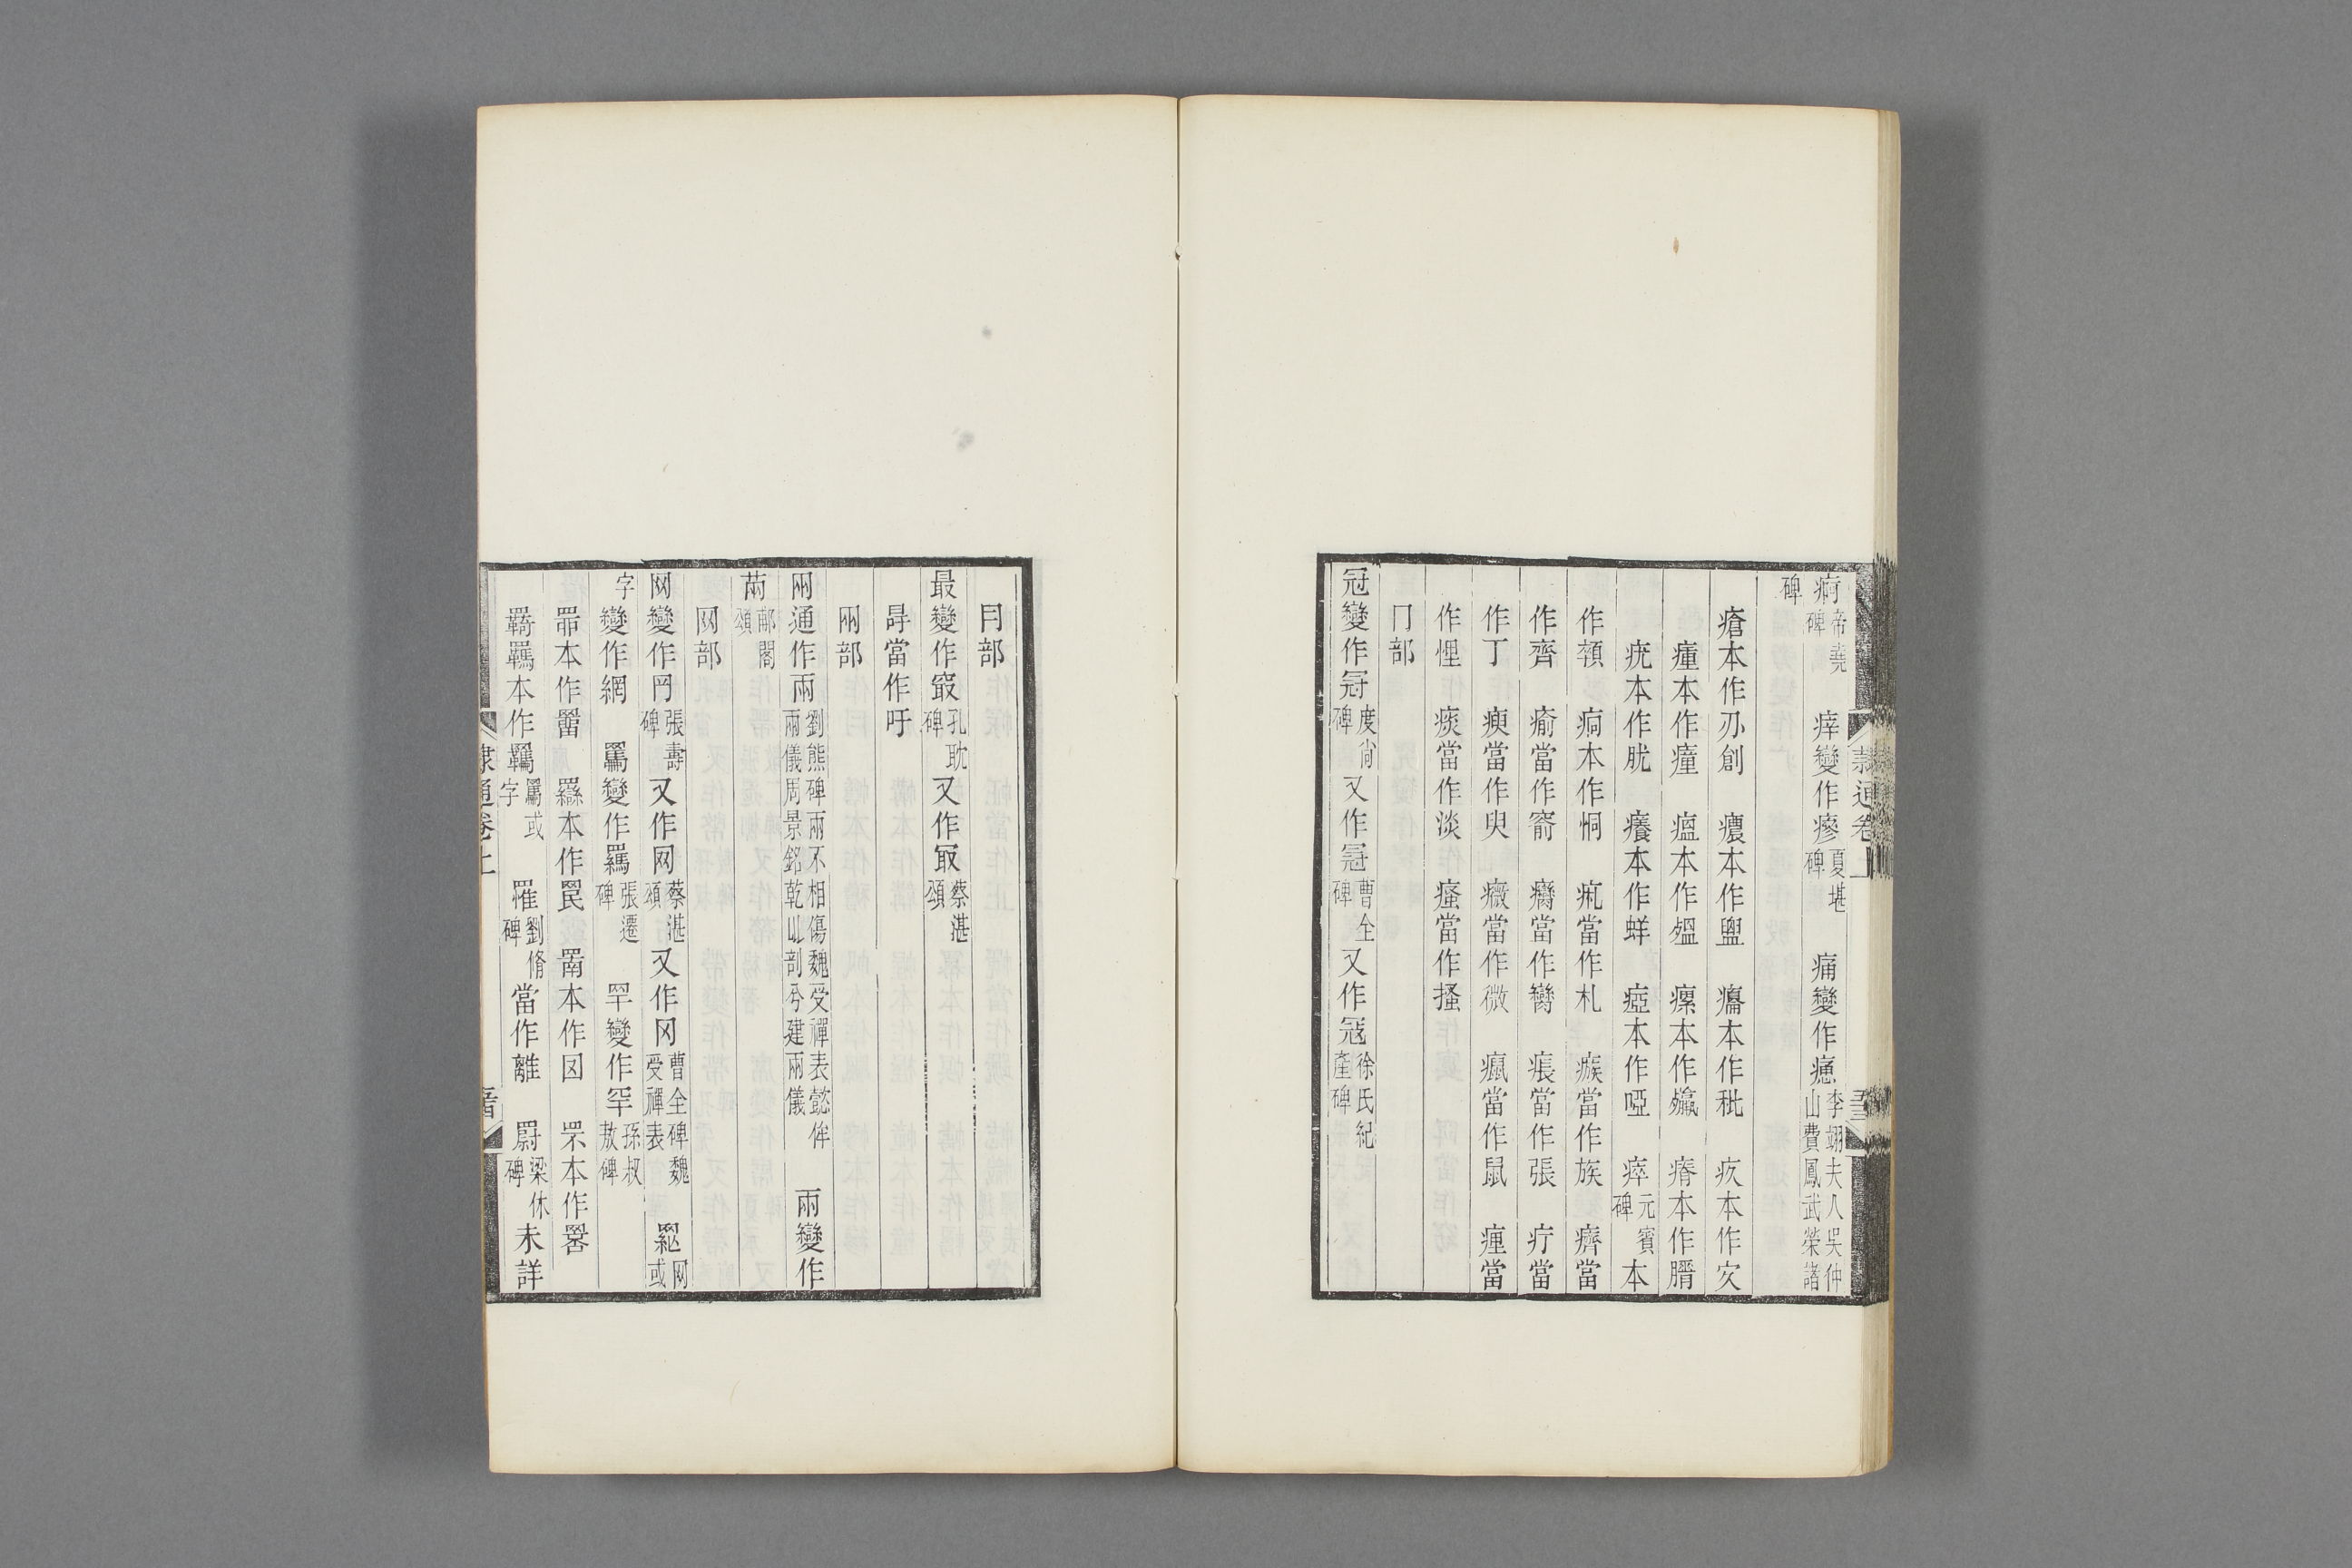 痾帝堯碑　痒變作瘮夏堪碑　痛變作㾯李翊夫人吳仲山費鳳武榮諸
碑
瘡本作刅創　癑本作盥　癟本作秕　疚本作㝌
瘇本作㿈　瘟本作殟　瘰本作㿔　瘠本作膌
疣本作肬　癢本作蛘　瘂本作啞　瘁元賓碑本
作顇　痌本作恫　疨當作札　瘯當作族　癠當
作齊　瘉當作窬　癵當作臠　痮當作張　疔當
作丁　瘐當作臾　癥當作微　癙當作鼠　㾖當
作悝　痰當作淡　瘙當作搔
冂部
冠變作𡨥度尚碑又作冠曹全碑又作冦徐氏紀產碑
隸通卷上
冃部
最變作㝡孔耽碑又作冣蔡湛頌
冔當作吁
㒳部
㒳通作兩劉熊碑兩不相傷魏受禪表懿侔兩儀周景銘乾㐀剖兮建兩儀　兩變作
𠕒郙閣頌
网部
网變作冋張壽碑又作网蔡湛頌又作冈曹全碑魏受禪表　䍏网或
字變作網　罵變作羈張遷碑　罕變作罕孫叔敖碑
罶本作罶　羉本作罠　罱本作囡　罘本作罯
羇羈本作羈馽或字　罹劉脩碑當作離　罻梁休碑未詳
隸通卷上